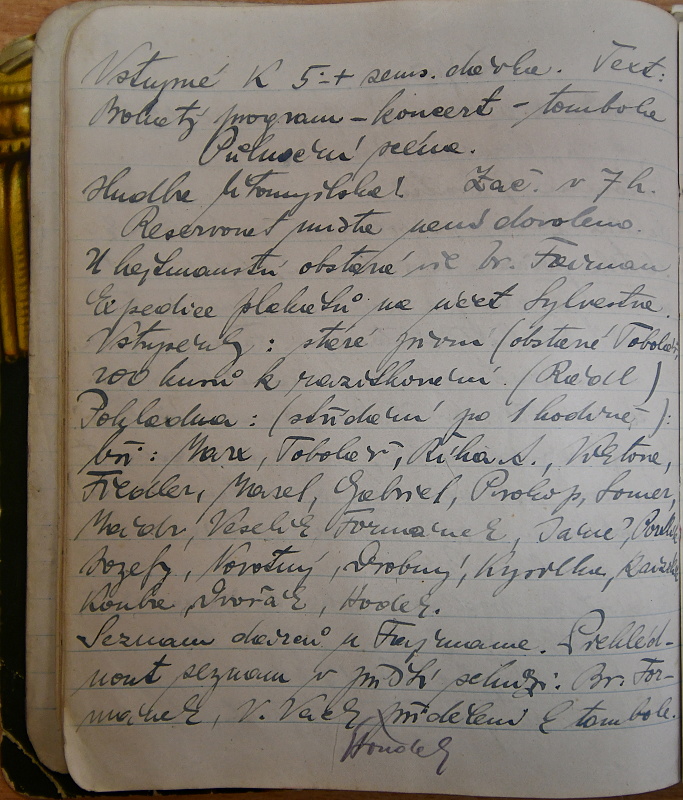 Vstupné K 5·- + zems. dávka. Text:
Bohatý program – koncert – tombola
Půlnoční scéna.
Hudba Litomyšlská! Zač. v 7 h.
Reservovat místa není dovoleno.
U hejtmanství obstará vše br. Fajman
Expedice plakátů na účet Sylvestra.
Vstupenky: staré první (obstará Tobolář,
200 kusů k rozškonání. (Riedl)
Pokladna: (střídání po 1 hodině):
bří: Marx, Tobolář, Říha A., Viktora,
Fiedler, Marel, Gabriel, Prokop, Somer,
Mazdr, Veselík Formánek, Janč,
Jozefy, Novotný, Drobný, Kyselka,
Kouba, Dvořák, Hodek.
Seznam darů u Fajmana. Přehléd-
nout seznam v příští schůzi. Br. For-
mánek, V. Vach přiděleni k tombole.
Houdek